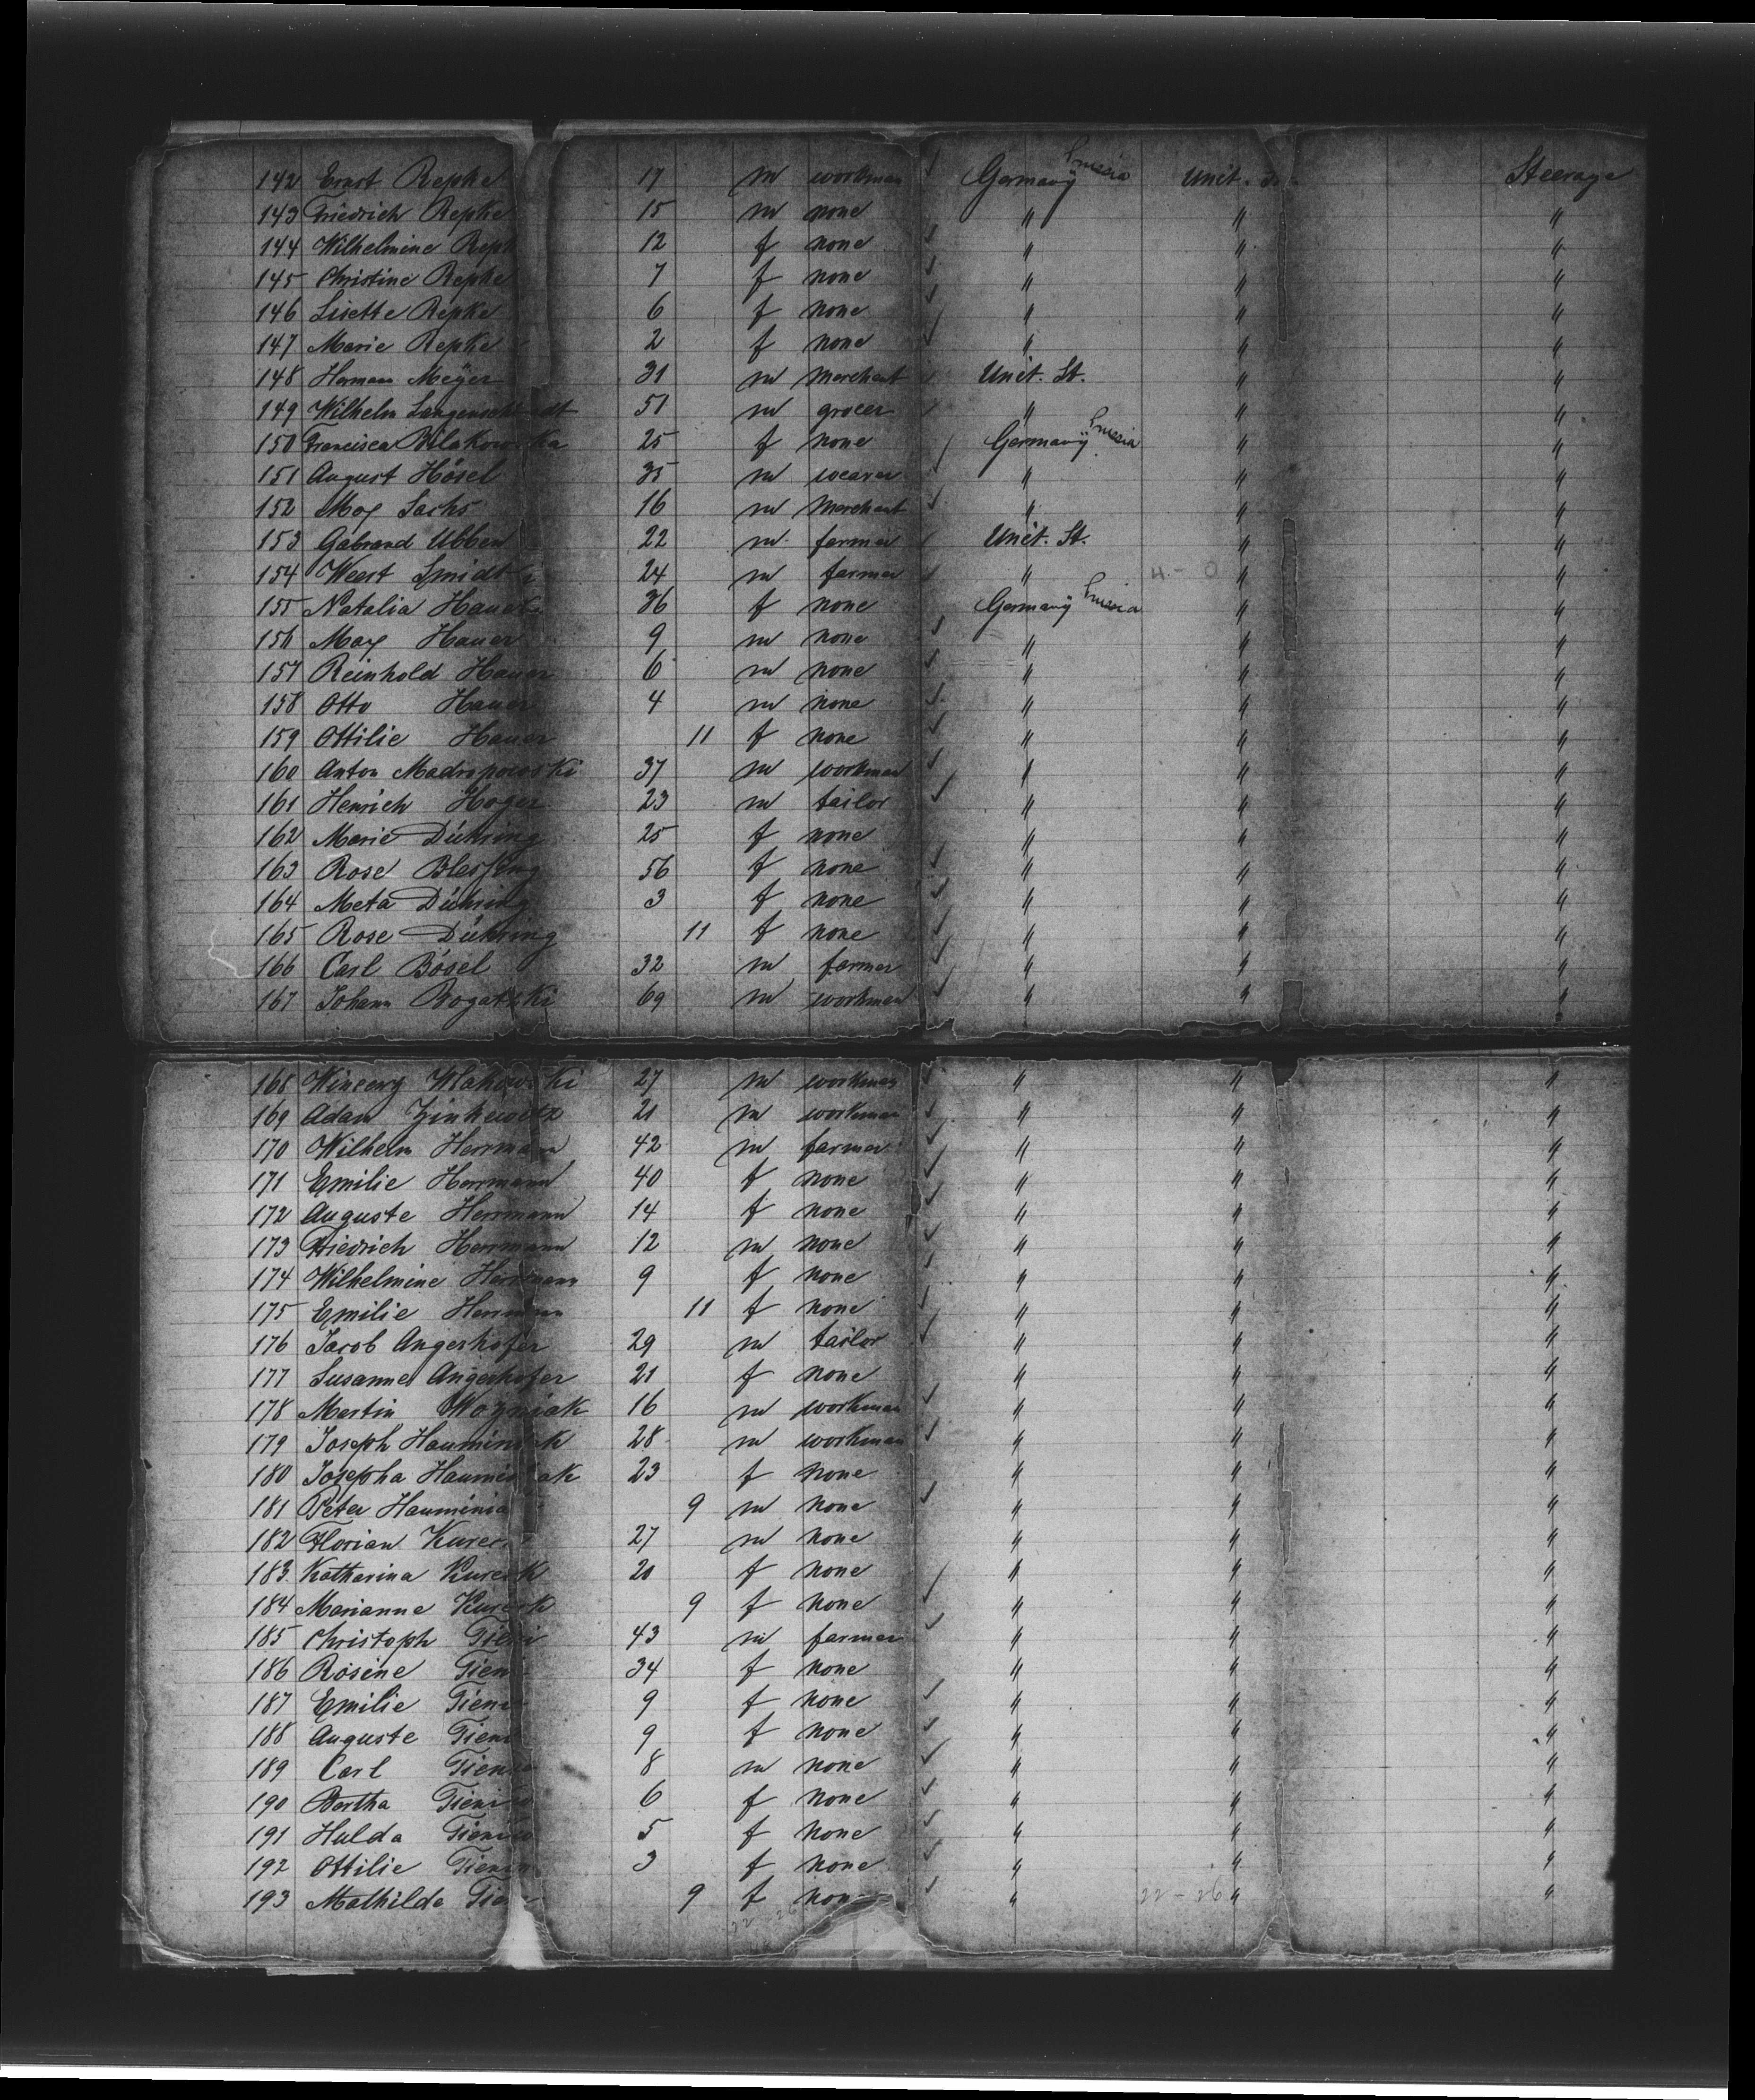 142 Ernst Repke 17 m workman ✓ Germany Prussia Unit. St. Steerage
143 Friedrich Repke 15 m none " " "
144 Wilhelmine Repk 12 f none ✓ " " "
145 Christine Repke 7 f none ✓ " " "
146 Lisette Repke 6 f none ✓ " " "
147 Marie Repke 2 f none ✓ " " "
148 Hermann Meÿer 31 m Merchant ✓ Unit. St. " "
149 Wilhelm 51 m grocer ✓ " " "
150 Francisca 25 f none ✓ Germanÿ Prussia " "
151 August Hösel 35 m weaver ✓ " " "
152 Max Sachs 16 m Merchant ✓ " " "
153 Gabrand Ubben 22 m farmer ✓ Unit. St. " "
154 Weert Smidt 24 m farmer ✓ " " "
155 Natalia Hauer 36 f none Germanÿ Prussia " "
156 Max Hauer 9 m none ✓ " " "
157 Reinhold Hauer 6 m none ✓ " " "
158 Otto Hauer 4 m none ✓ " " "
159 Ottilie Hauer 11 f none ✓ " " "
160 Anton Madropowski 37 m workman ✓ " " "
161 Henrich Hoger 23 m tailor ✓ " " "
162 Marie Dühring 25 f none " " "
163 Rose Blessing 56 f none ✓ " " "
164 Meta Dühring 3 f none ✓ " " "
165 Rose Dühring 11 f none ✓ " " "
166 Carl Bösel 32 m farmer ✓ " " "
167 Johann Rogatzki 69 m workman ✓ " " "
168 Wincenty 27 m workman ✓ " " "
169 Adam Zinkewitz 21 m workman ✓ " " "
170 Wilhelm Herrmann 42 m farmer ✓ " " "
171 Emilie Herrmann 40 f none ✓ " " "
172 Auguste Herrmann 14 f none ✓ " " "
173 Friedrich Herrmann 12 m none ✓ " " "
174 Wilhelmine Herrmann 9 f none ✓ " " "
175 Emilie Herrmann 11 f none ✓ " " "
176 Jacob Angerhofer 29 m tailor ✓ " " "
177 Susanne Angerhofer 21 f none " " "
178 Martin Wozniak 16 m workman ✓ " " "
179 Joseph Hauminiak 28 m workman ✓ " " "
180 Josepha Hauminiak 23 f none " " "
181 Peter Hauminia 9 m none ✓ " " "
182 Florian 27 m none " " "
183 Katharina 20 f none ✓ " " "
184 Marianne 9 f none ✓ " " "
185 Christoph 43 m farmer ✓ " " "
186 Rosine 34 f none " " "
187 Emilie 9 f none ✓ " " "
188 Auguste 9 f none ✓ " " "
189 Carl 8 m none ✓ " " "
190 Bertha 6 f none ✓ " " "
191 Hulda 5 f none ✓ " " "
192 Ottilie 3 f none ✓ " " "
193 Mathilde 9 f non ✓ " 22-26 " "